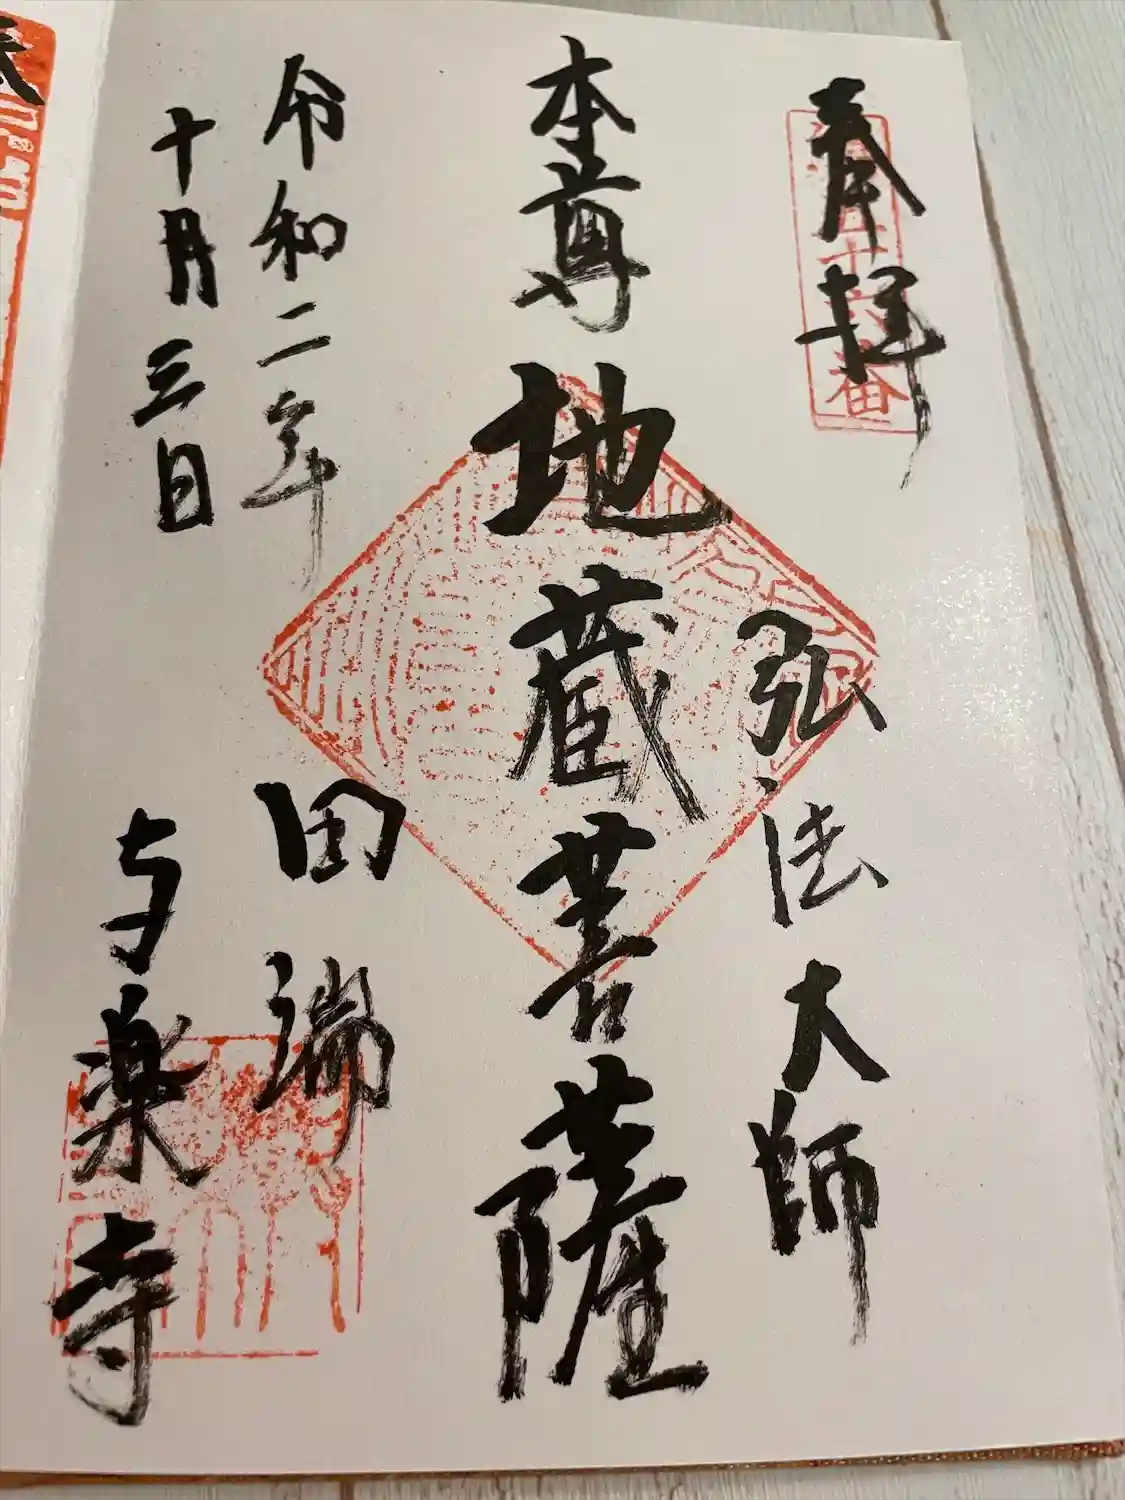 奉拝
弘法大師
本尊地蔵菩薩
令和二年
十月三日
田端
与楽寺
十六番